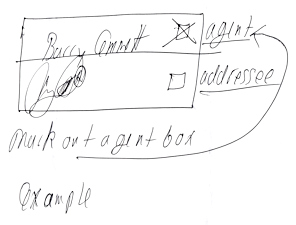 Barry Emmett agent
addressee
mark out agent box
example